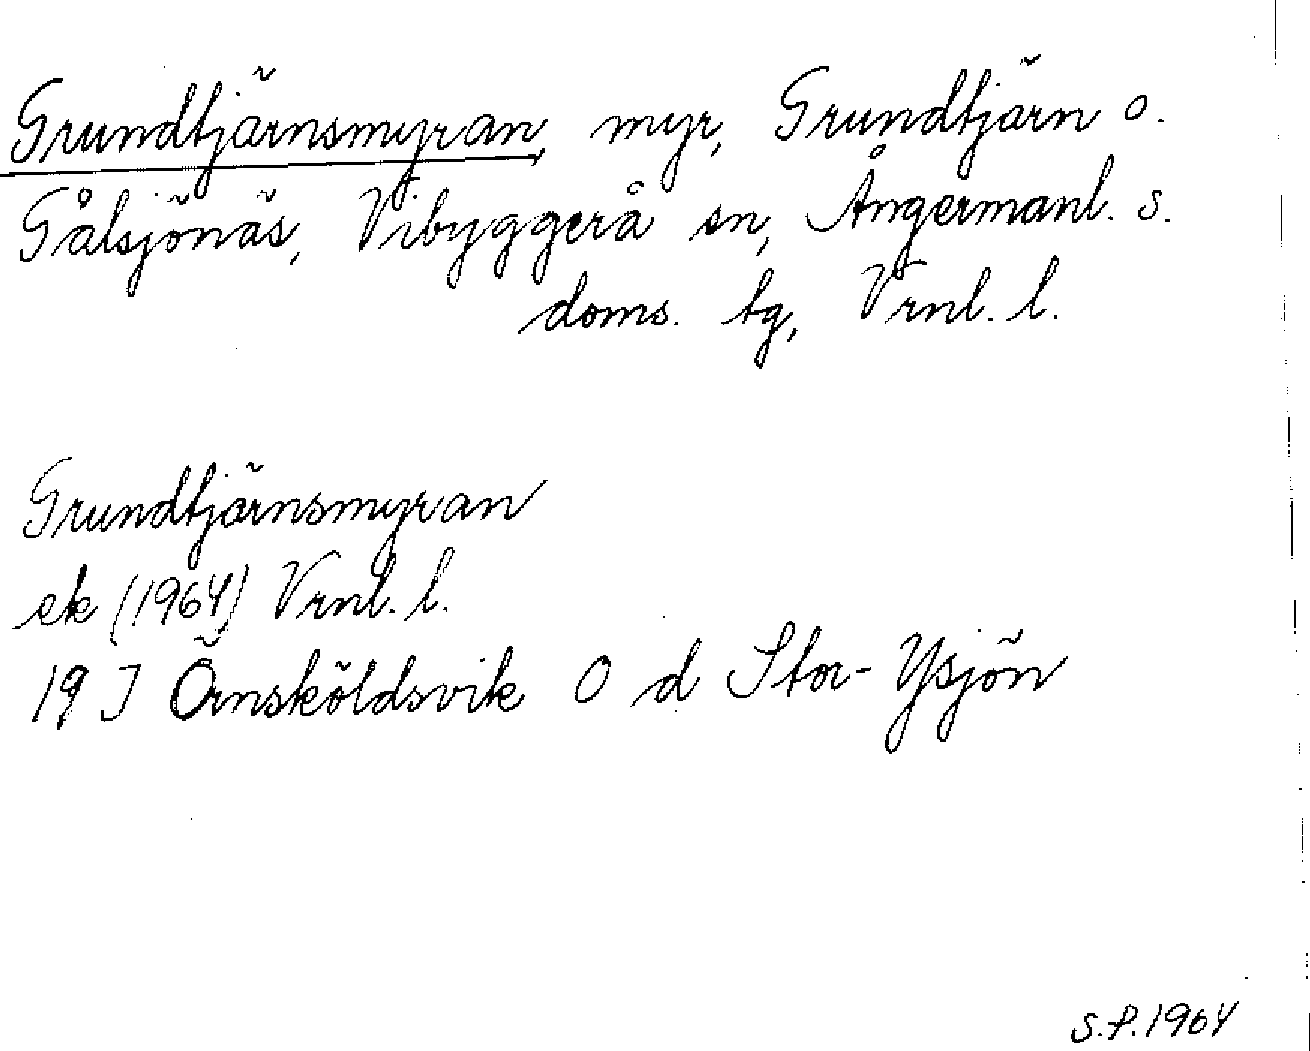 Grundtjärnsmyran, myr, Grundtjärn o.
Gålsjönäs, Vibyggerå sn, Ångermanl. s.
doms. tg, Vrnl. l.
Grundtjärnsmyran
ek (1964) Vrnl. l.
19 J Örnsköldsvik O d Stor-Ysjön
S.P. 1964